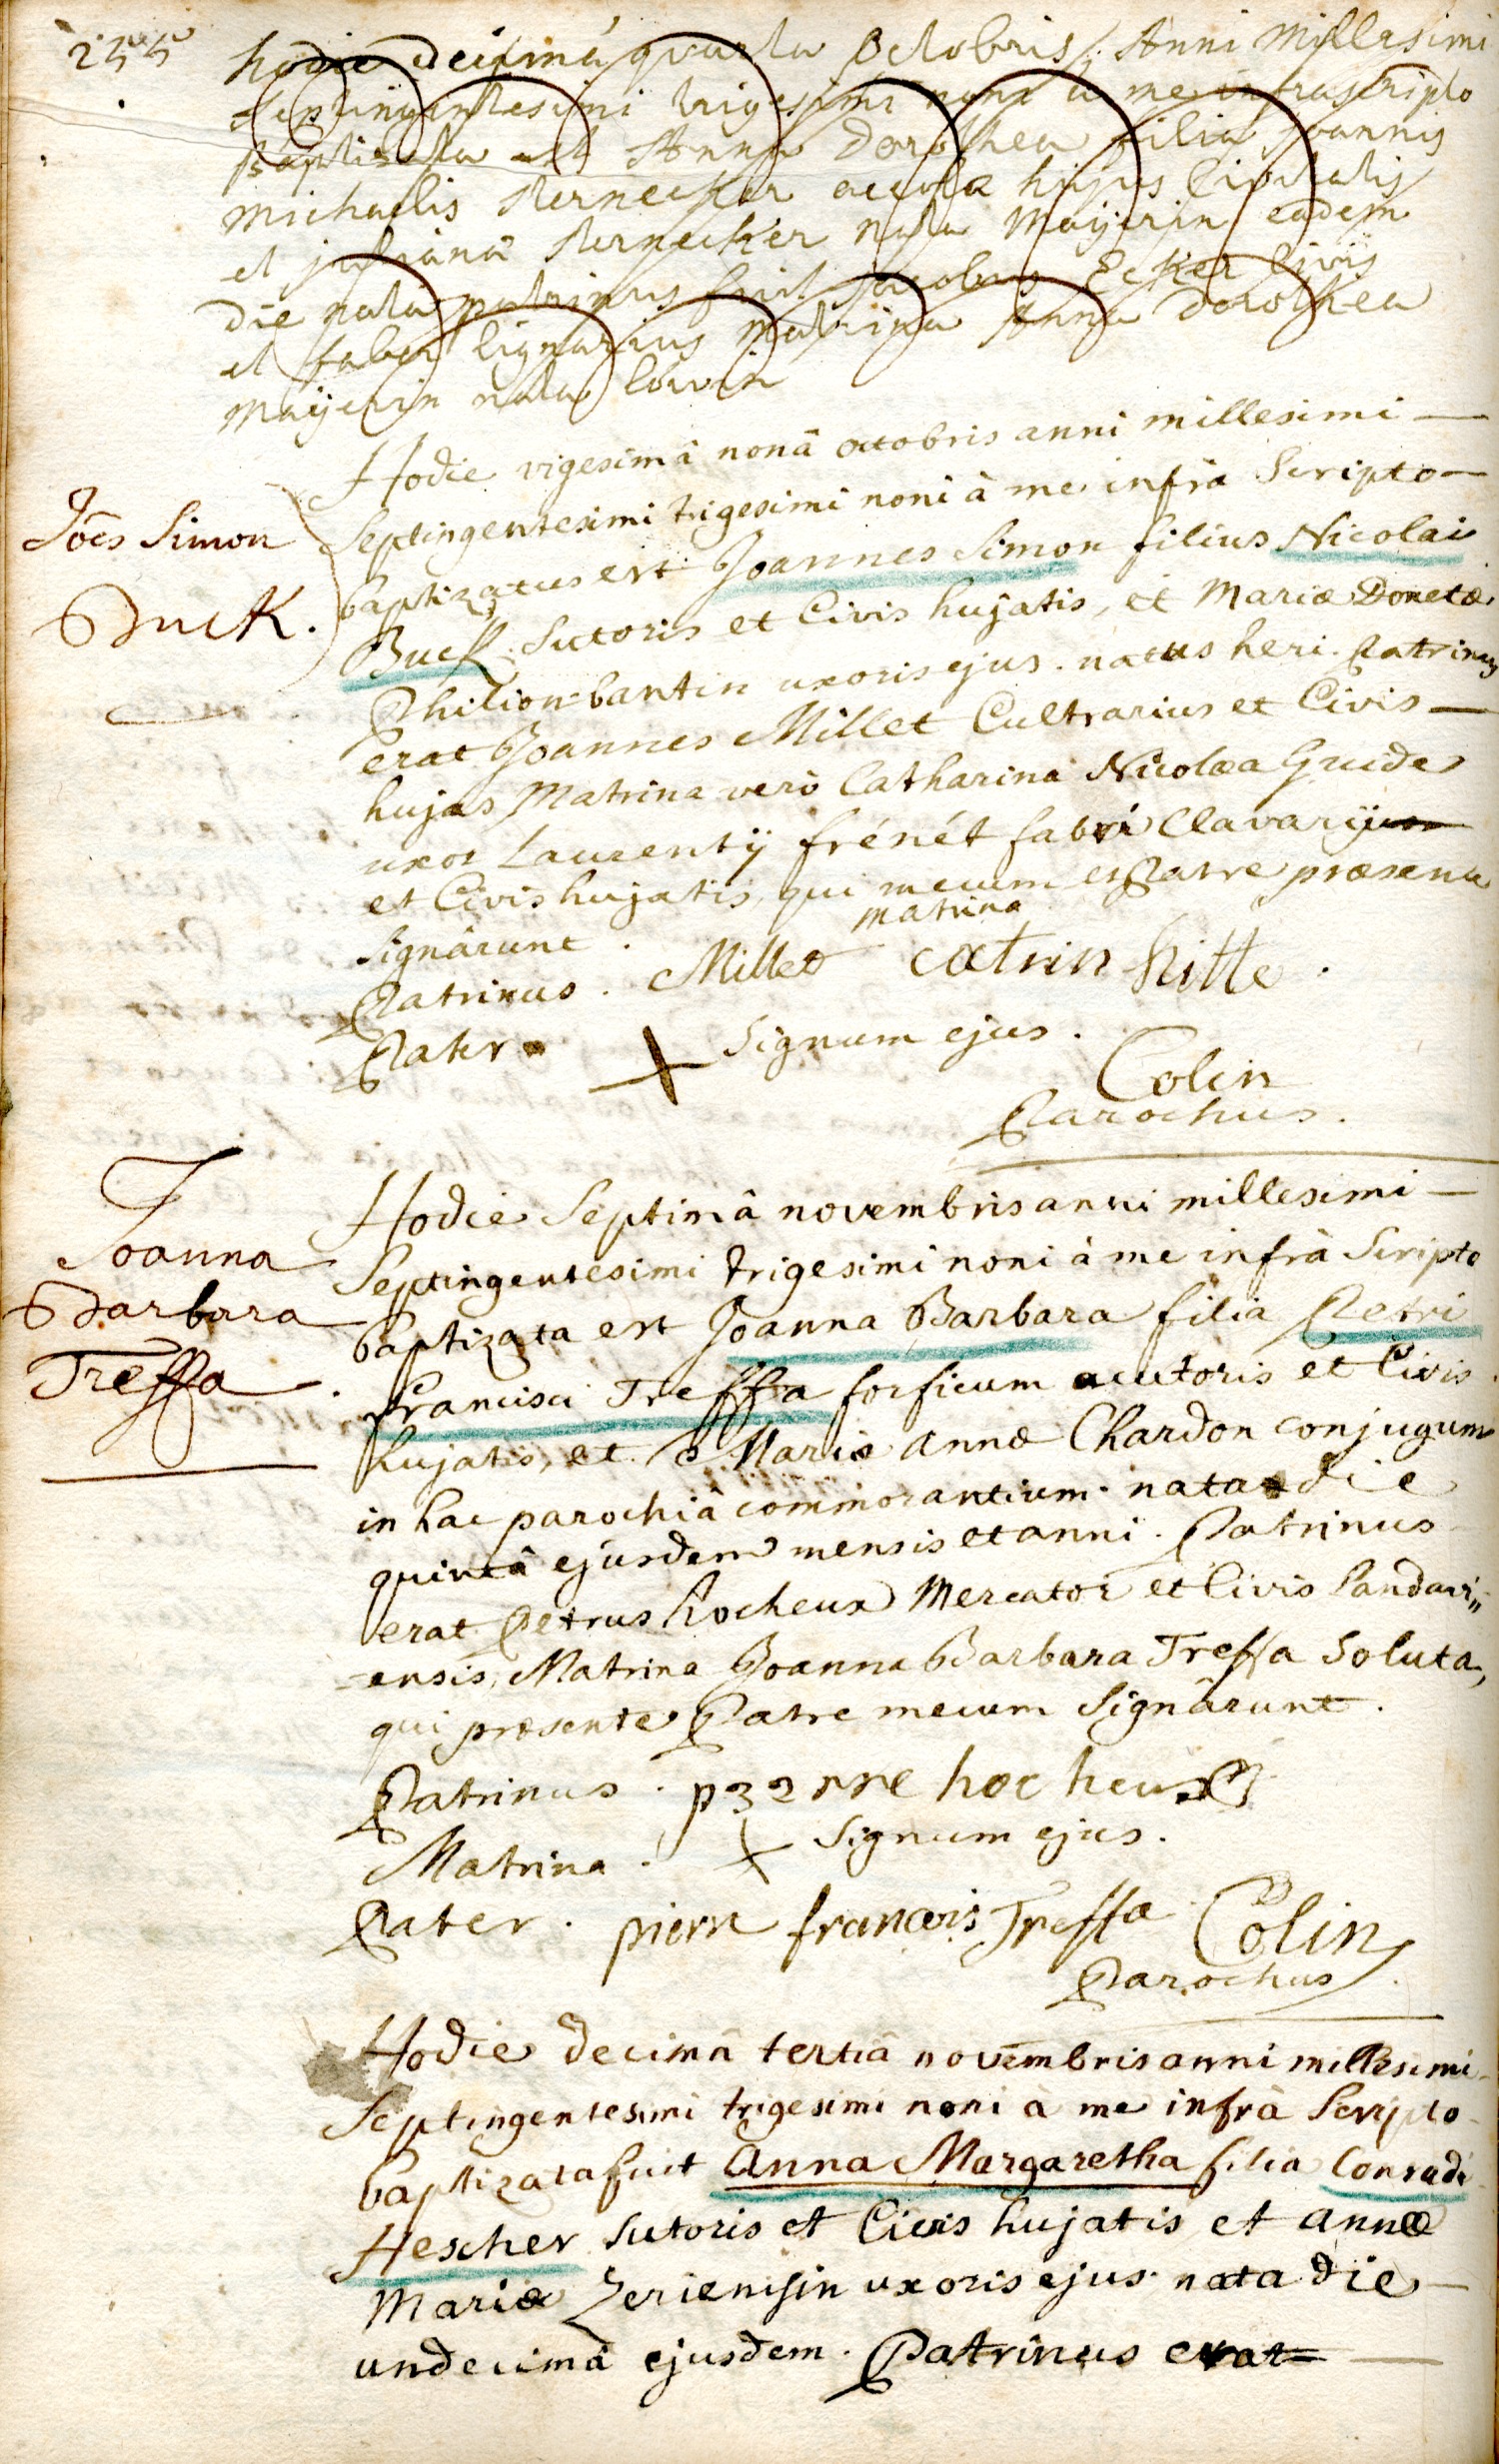 255
hodie decimâ quarta Octobris Anni Millesimi
septingentesimi trigesimi noni a me infrascripto
Baptizata est Anna Dorothea filia Joannis
Michaelis Sternecker accolæ hujus Civitatis
et julianâ Sternecker nata Mayerin eadem
die nata patrinus fuit Jacobus Ecker Civis
et faber lignarius Matrina Anna Dorothea
Mayerin nata
Hodie vigesimâ nonâ octobris anni millesimi
Septingentesimi trigesimi noni à me infrà Scripto
Joês Simon
baptizatus est Joannes Simon filius Nicolai
Buck.
Buck Sutoris et Civis hujatis, et Mariæ Donetæ
Philion-bantin uxoris ejus. natus heri. Patrinus
erat Joannes Millet Cultrarius et Civis
hujas Matrina verò Catharina Nicolæa Guide
uxor Laurentÿ frénét fabri Clavarÿ
et Civis hujatis, qui mecum et Patre præsente
Signârunt.
matrina
Patrinus. Millet catrin hitte.
Pater Signum ejus.
Colin
Parochus.
Hodie Septimâ novembris anni millesimi
Joanna
Septingentesimi trigesimi noni à me infrà Scripto
Barbara
baptizata est Joanna Barbara filia Petri
Treffa.
Francisci Treffa forficum acutoris et Civis
hujatis, et Mariæ annæ Chardon conjugum
in hac parochiâ commorantium. nata die
quintâ ejusdem mensis et anni. Patrinus
erat Petrus hocheux Mercator et Civis Landavi„
-ensis, Matrina Joanna Barbara Treffa Soluta,
qui præsente Patre mecum Signârunt.
Patrinus. hocheux
Matrina. Signum ejus.
Pater. pierre francois Treffa Colin
Parochus.
Hodie decimâ tertiâ novembris anni millesimi
Septingentesimi trigesimi noni à me infrà Scripto
baptizata fuit Anna Margaretha filia Conradi
Hescher Sutoris et Civis hujatis et annæ
Mariæ uxoris ejus. nata die
undecimâ ejusdem. Patrinus erat